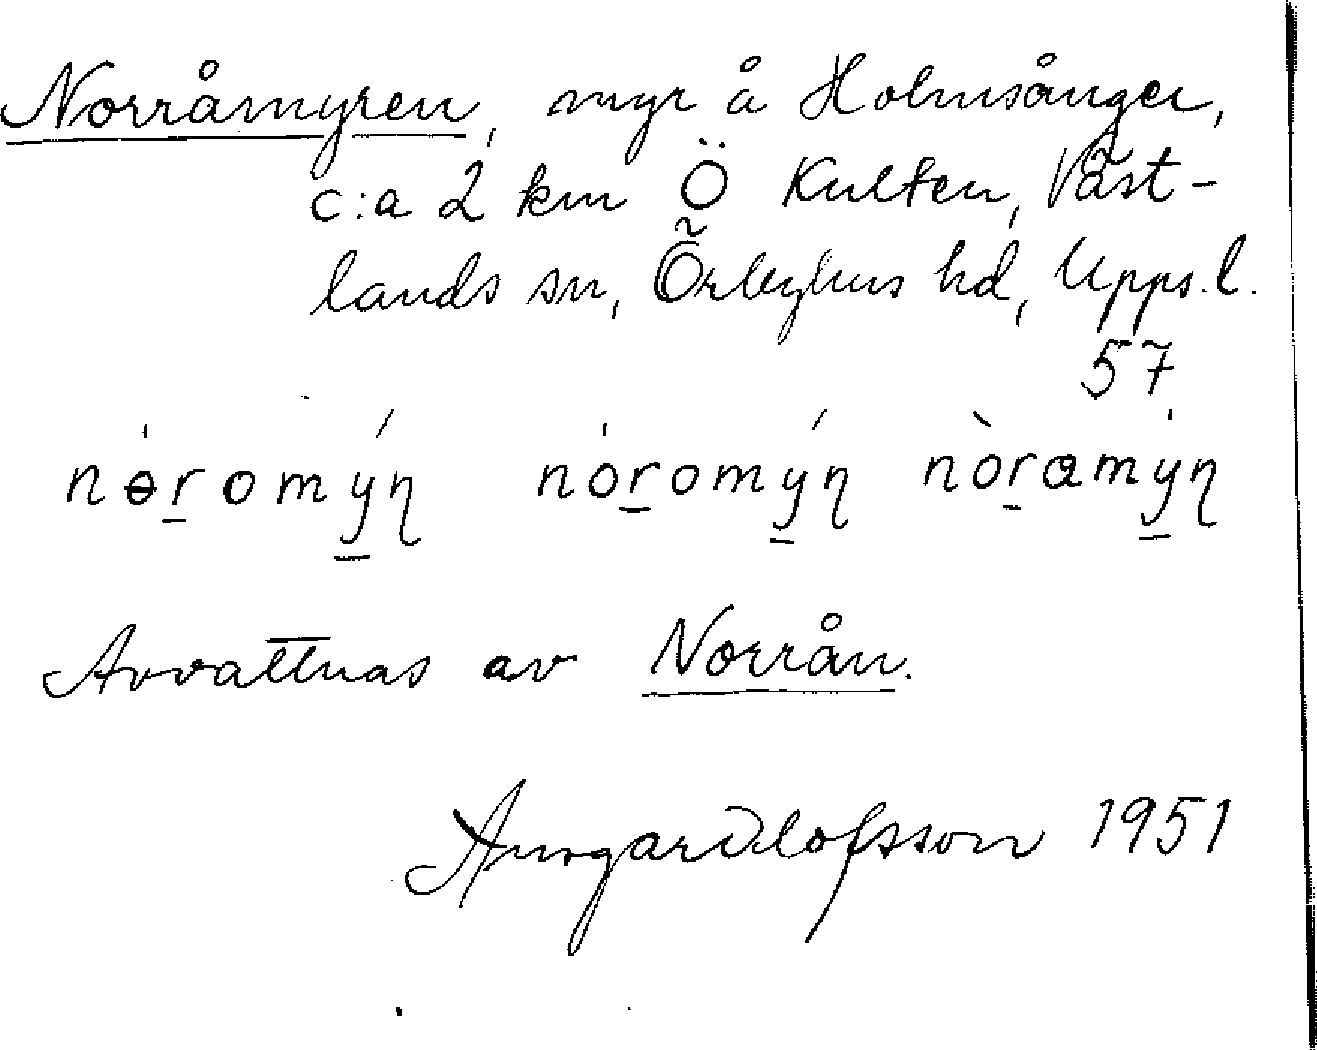 Norråmyren, myr å Holmsånger,
c:a 2 km Ö Kulten, Väst-
lands sn, Örbyhus hd, Upps. l.
57
nɵ́ro̱mýɳ nóro̱mýɳ nòramýɳ
Avvattnas av Norrån.
Ansgar Olofsson 1951